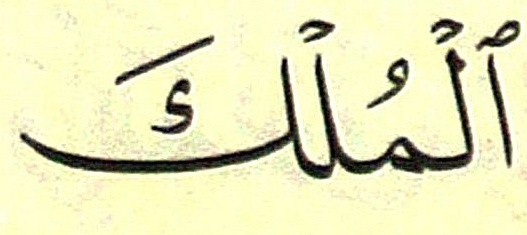 ٱلْمُلْكَ